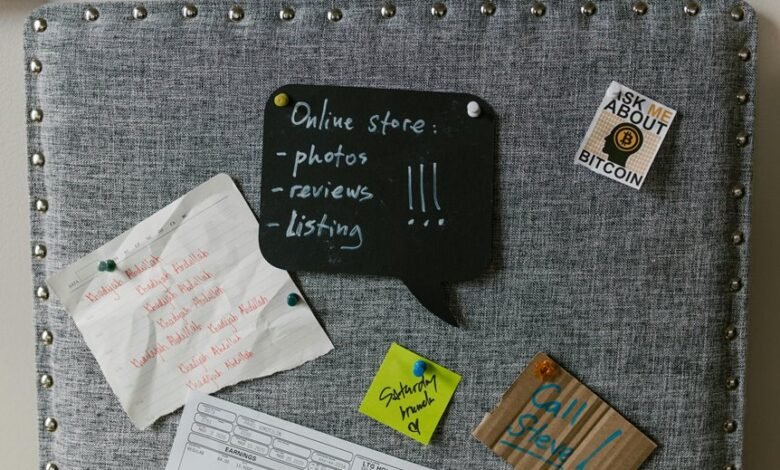 Online store:
- photos
- reviews
- Listing
!!!
ASK ME
ABOUT
BITCOIN
Khadijah Abdallah
Khadijah Abdallah
Khadijah Abdallah
Khadijah Abdallah
Khadijah Abdallah
Khadijah Abdallah
Khadijah Abdallah
Saturday
brunch
Call
Steve!
EARNINGS
REGULAR